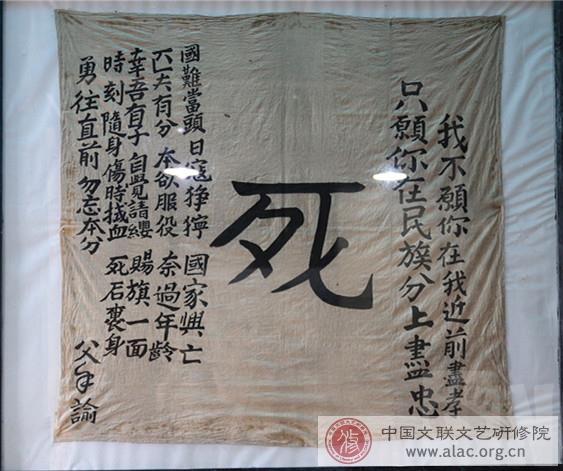 我不願你在我近前盡孝
只願你在民族分上盡忠
死
國難當頭 日寇猙獰 國家興亡
匹夫有分 本欲服役 奈過年齡
幸吾有子 自覺請纓 賜旗一面
時刻隨身 傷時拭血 死后裹身
勇往直前 勿忘本分
父手諭
中国文联文艺研修院
www.alac.org.cn